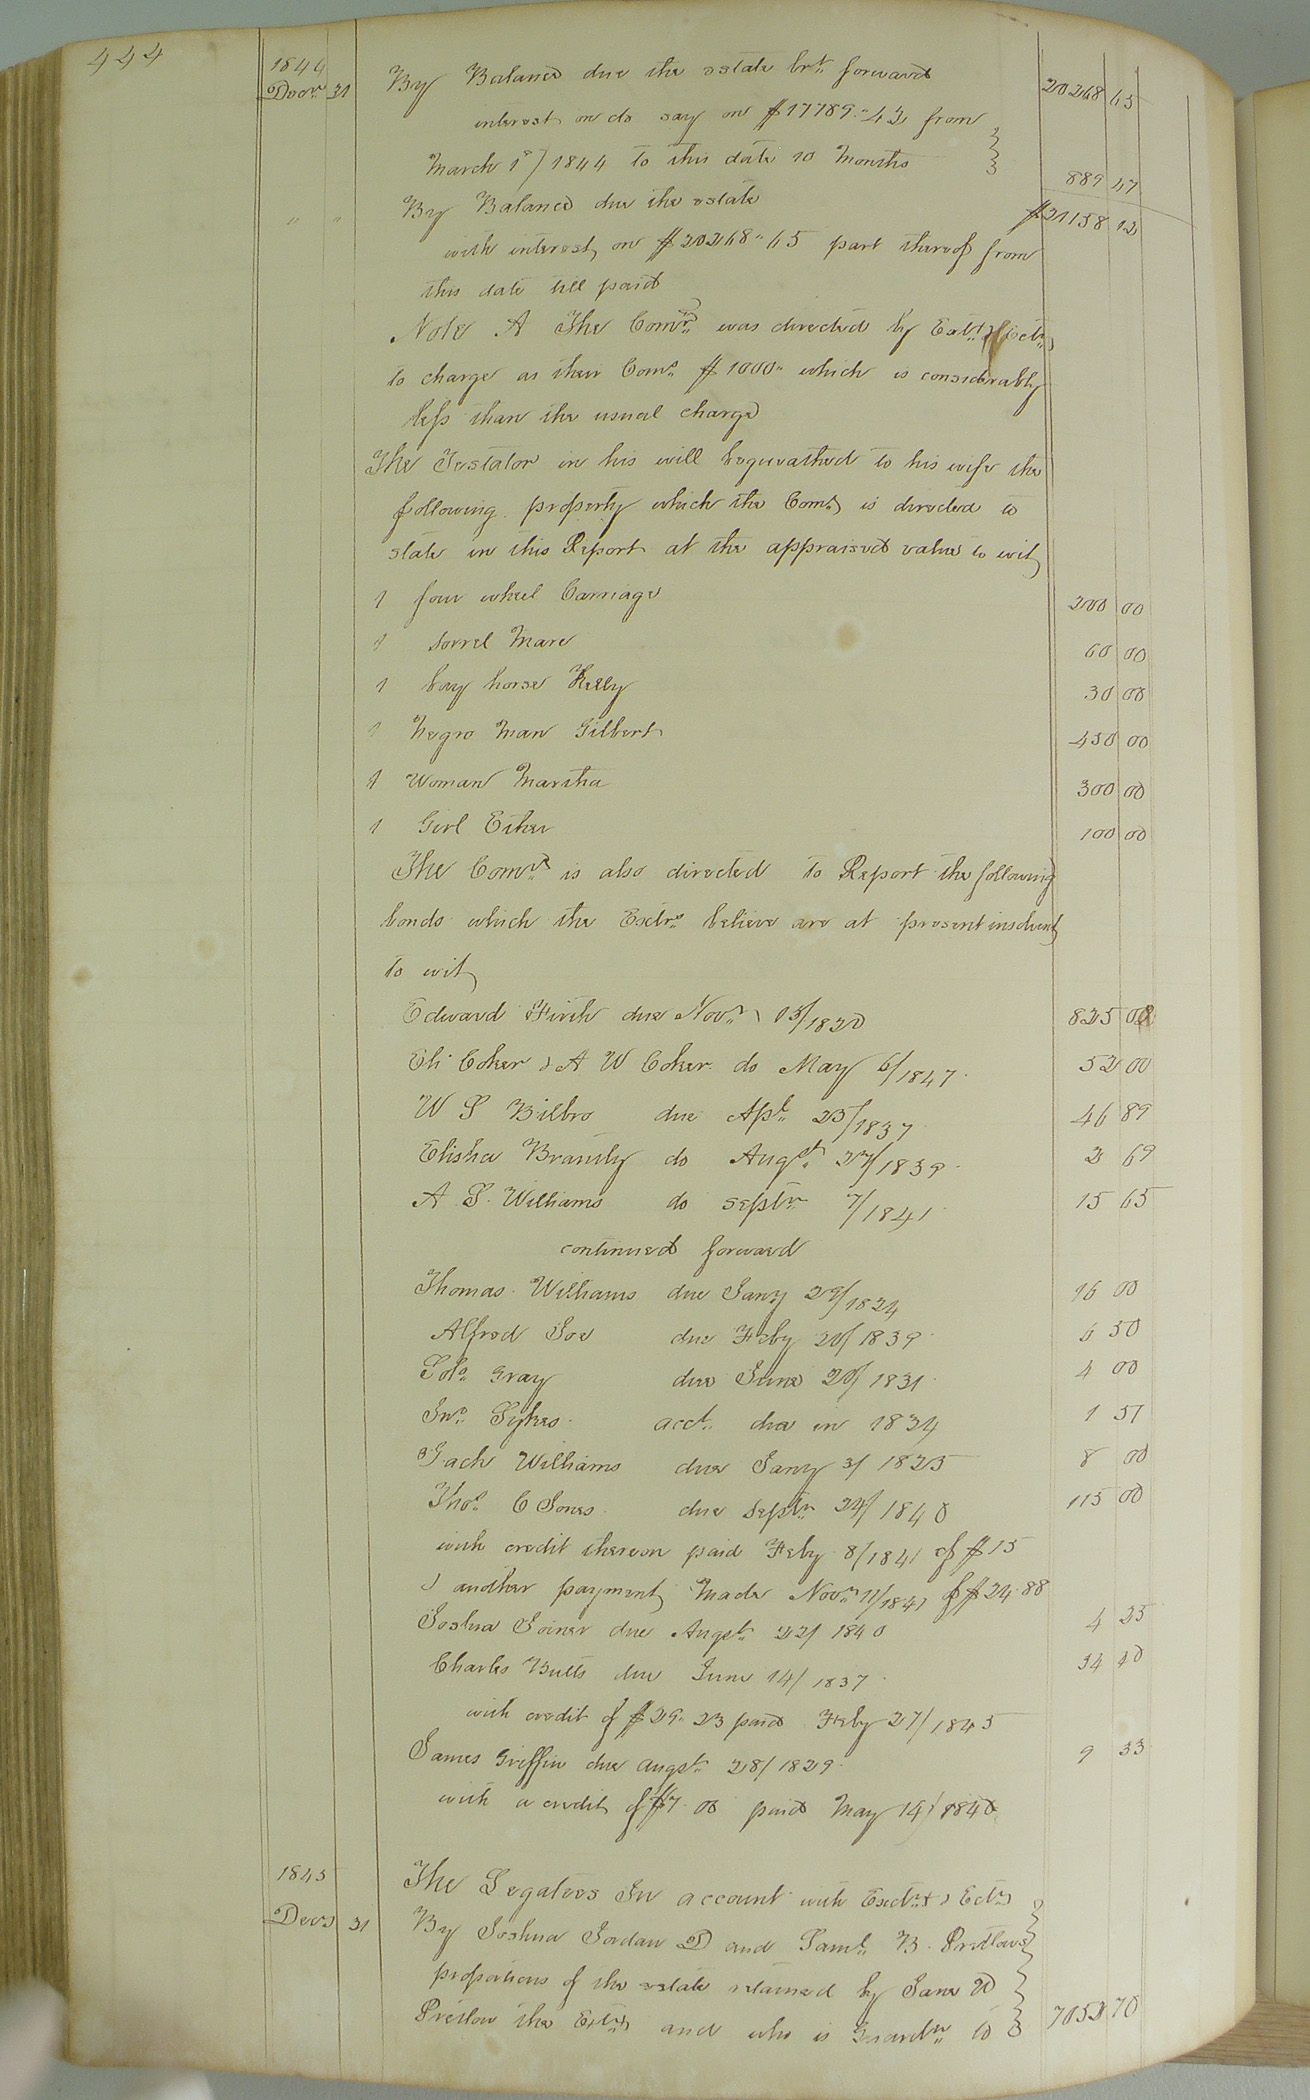 444
1844
Decr. 31 By Balance due the estate brt. forward 20268 65
interest on do say on $17789.43 from
March 1st/1844 to this date 10 Months 889 47
" " By Balance due the estate $21158 12
with interest on $20268.65 part thereof from
this date till paid
Note A The Comr. was directed by
to charge as their Coms. $1000. which is considerably
less than the usual charge
The Testator in his will bequeathed to his wife the
following property which the Comr. is directed to
state in this Report at the appraised value to wit
1 four wheel Carriage 200 00
1 Sorrel Mare 60 00
1 bay horse Kelly 30 00
1 Negro Man Gilbert 450 00
1 Woman Martha 300 00
1 Girl Ether 100 00
The Comr. is also directed to Report the following
bonds which the Exctrs. believe are at present insolvent
to wit
Edward Firth due Novr. 13/1820 825 00
Eli Coker & A W Coker do May 6/1847 52 00
W S Bilbro due Apl. 25/1837 46 89
Elisha Brantly do Augst. 27/1839 2 69
A S. Williams do Septr. 7/1841 15 65
continued forward
Thomas Williams due Jany 29/1824 16 00
Alfred Joe due Feby 20/1839 6 50
Solo. Gray due June 20/1831 4 00
Jno. Sykes acct. due in 1834 1 51
Zach Williams due Jany 3/1825 8 00
Thos. C Jones due Septr. 24/1840 115 00
with credit thereon paid Feby 8/1841 of $15
& another payment Made Novr. 11/1841 of $24.88
Joshua Joiner due Augst. 22/1840 4 25
Charles Butts due June 14/1837 34 40
with credit of $29.23 paid Feby 27/1845
James Griffin due Augst. 28/1829 9 33
with a credit of $7.00 paid May 14/1840
1845 The Legatees In account with Exctrx & Ectr
Decr 31 By Joshua Jordan D and Saml. B. Pretlows
proportions of the estate retained by Jane D
Pretlow the Extrx and who is Guardn. to 7052 70